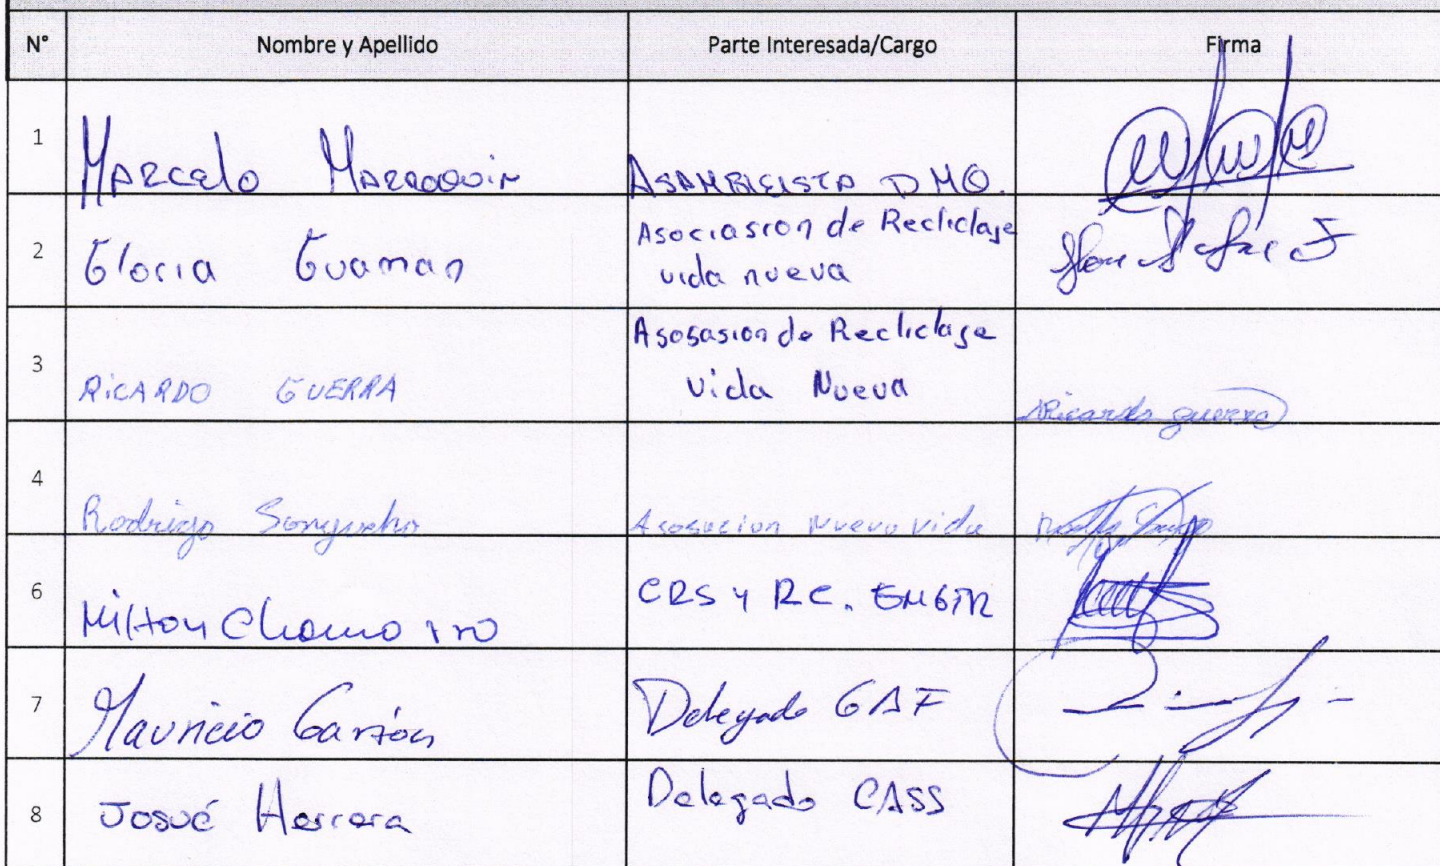 N° Nombre y Apellido Parte Interesada/Cargo Firma
1 Marcelo Marroquin ASAMBLEISTA DMQ.
2 Gloria Guaman Asociasion de Recliclaje
vida nueva
3 RICARDO GUERRA Asosasion de Recliclaje
vida Nueva Ricardo guerra
4 Rodrigo Asosacion Nueva vida
6 Milton Chamorro CRS y RC. EMGIR
7 Mauricio Garzón Delegado GAF
8 Josué Herrera Delegado CASS